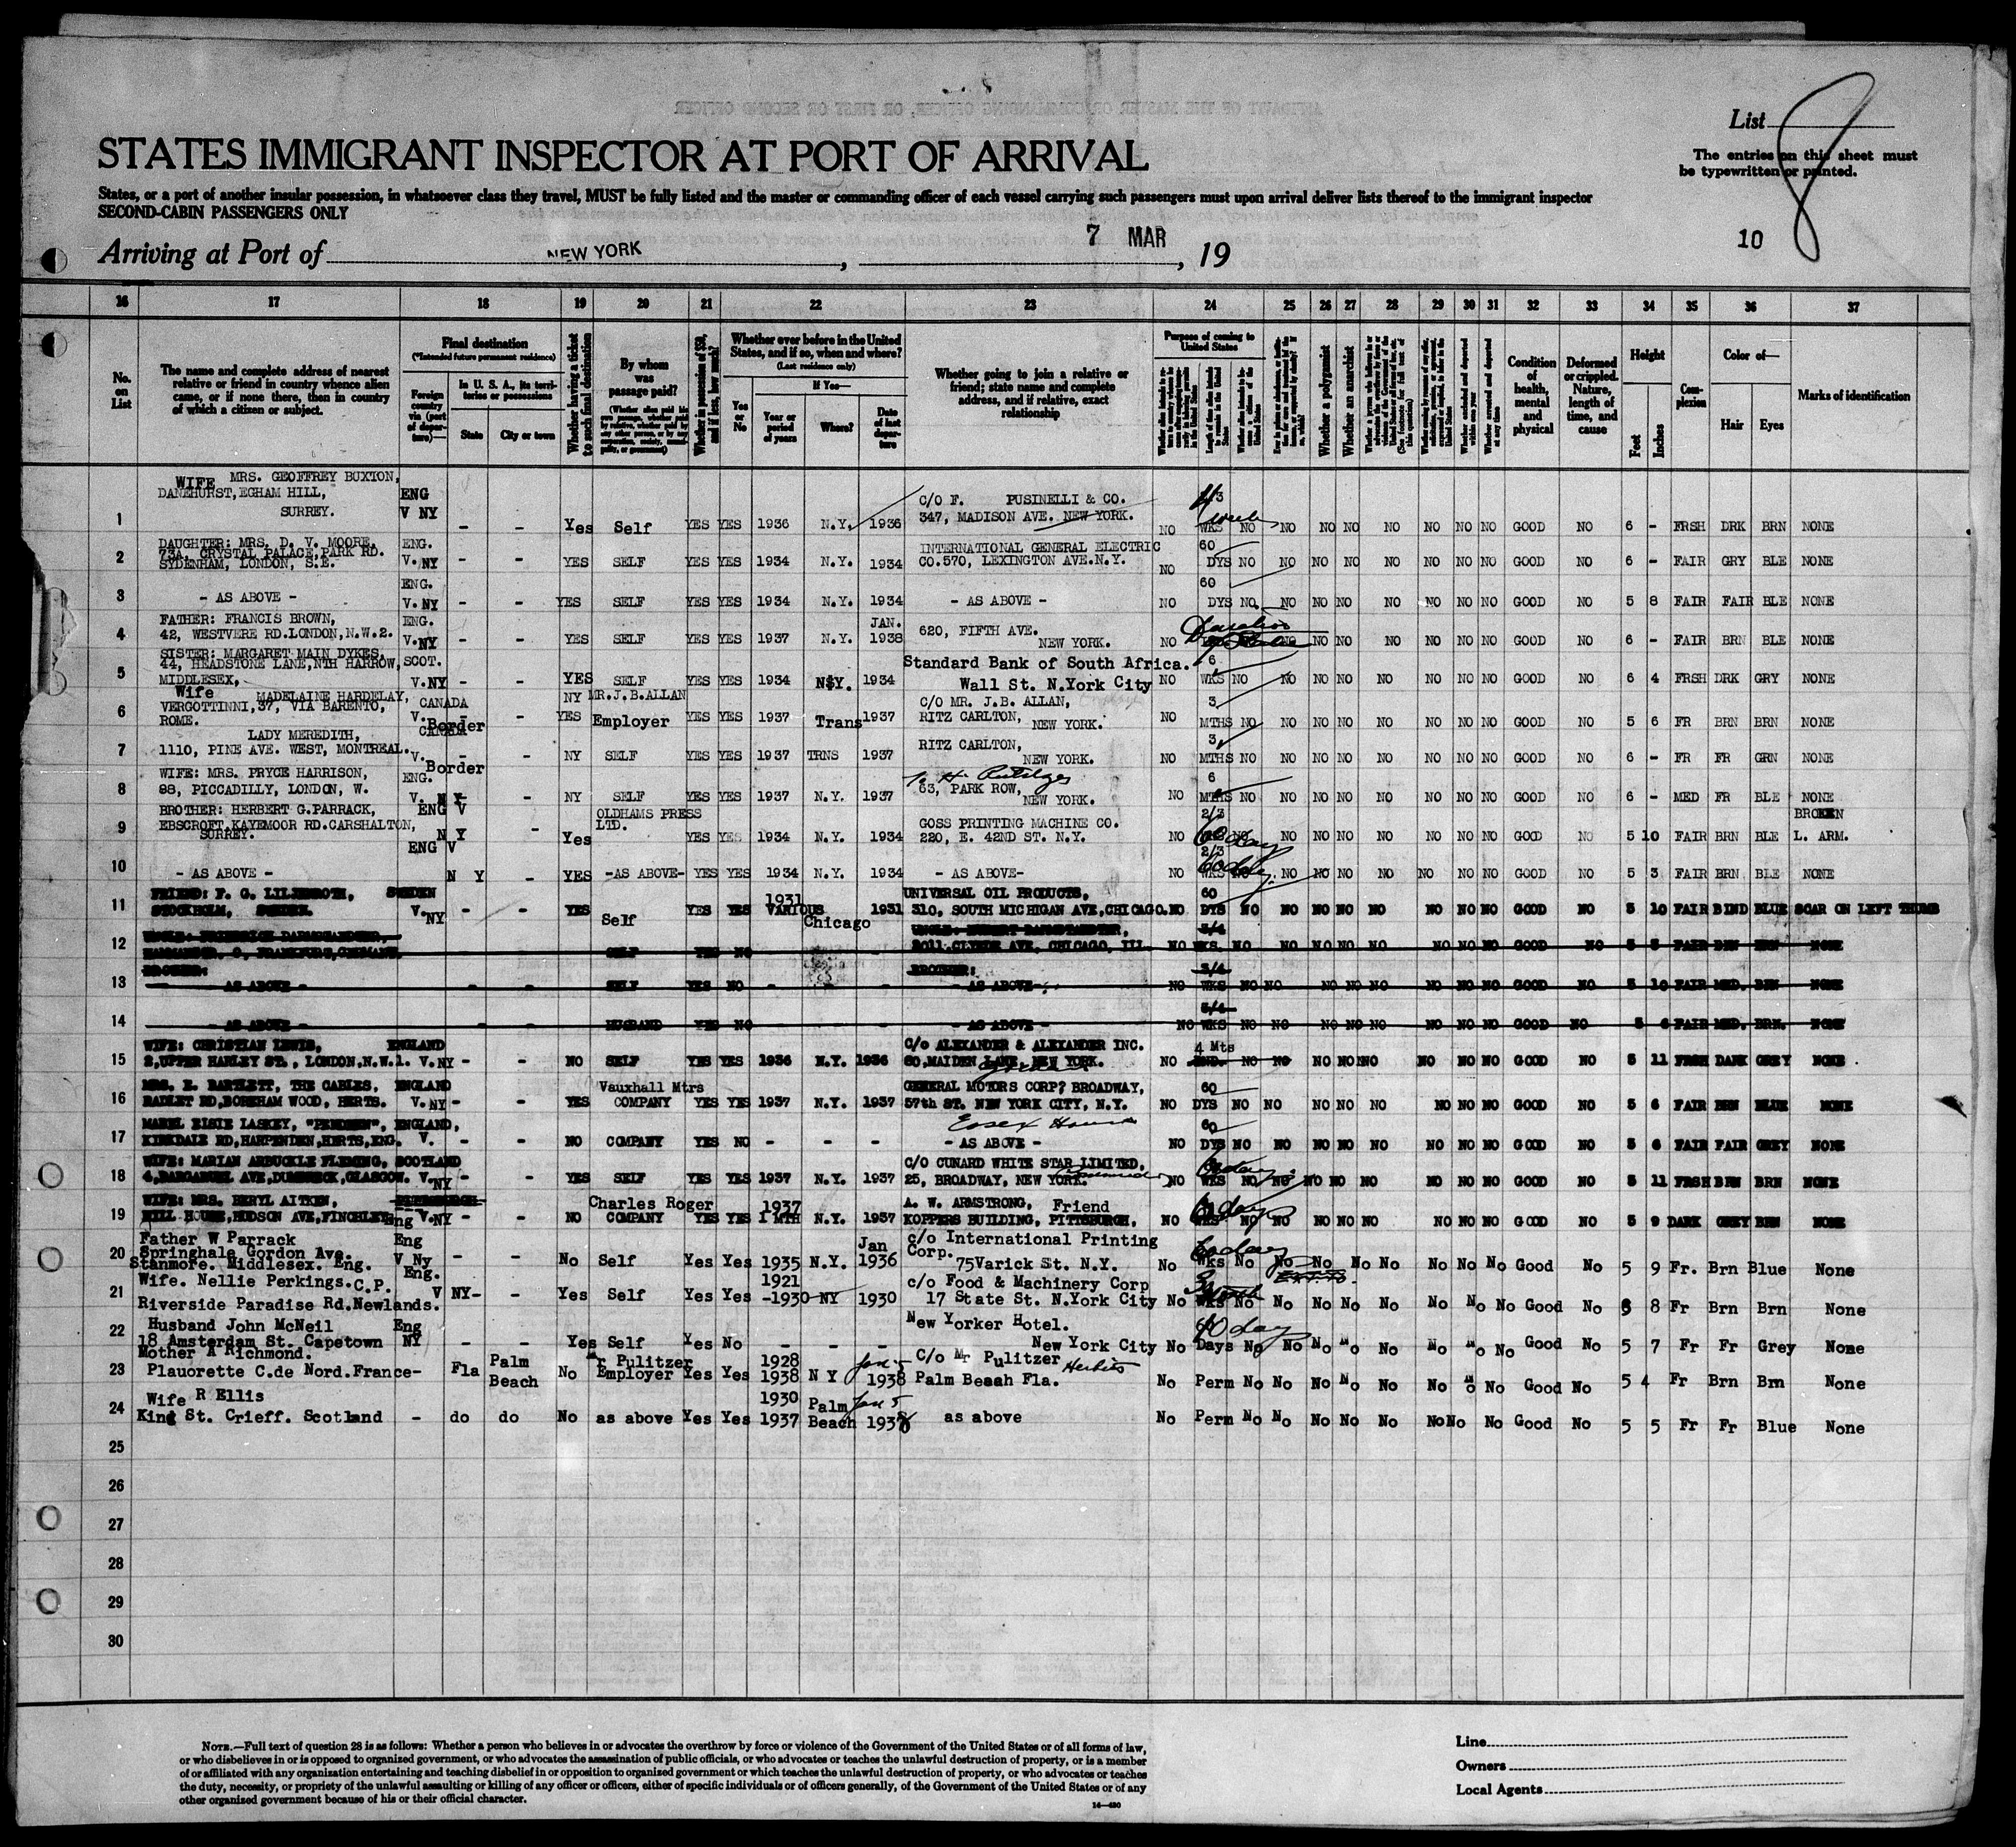 List 8
STATES IMMIGRANT INSPECTOR AT PORT OF ARRIVAL
The entries on this sheet must
be typewritten or printed.
States, or a port of another insular possession, in whatsoever class they travel, MUST be fully listed and the master or commanding officer of each vessel carrying such passengers must upon arrival deliver lists thereof to the immigrant inspector
SECOND-CABIN PASSENGERS ONLY
Arriving at Port of NEW YORK, 7 MAR, 19
10
16 17 18 19 20 21 22 23 24 25 26 27 28 29 30 31 32 33 34 35 36 37
No. on List
The name and complete address of nearest relative or friend in country whence alien came, or if none there, then in country of which a citizen or subject.
Final destination
(*Intended future permanent residence)
Foreign country via (port of departure)—
In U. S. A., its territories or possessions
State
City or town
Whether having a ticket to such final destination
By whom was passage paid?
Whether in possession of $50, and if less, how much?
Whether ever before in the United States, and if so, when and where?
(Last residence only)
Yes or No
If Yes—
Year or period of years
Where?
Date of last departure
Whether going to join a relative or friend; state name and complete address, and if relative, exact relationship
Purpose of coming to United States
Whether a polygamist
Whether an anarchist
Condition of health, mental and physical
Deformed or crippled. Nature, length of time, and cause
Height
Feet
Inches
Complexion
Color of—
Hair
Eyes
Marks of identification
WIFE MRS. GEOFFREY BUXTON,
DANEHURST, EGHAM HILL, ENG C/O F. PUSINELLI & CO.
SURREY. V NY 347, MADISON AVE. NEW YORK. 4 weeks
1 - - Yes Self YES YES 1936 N.Y. 1936 NO WKS NO NO NO NO NO NO NO NO GOOD NO 6 - FRSH DRK BRN NONE
DAUGHTER: MRS. D. V. MOORE, ENG. INTERNATIONAL GENERAL ELECTRIC 60
2 73A, CRYSTAL PALACE, PARK RD. V. NY - - YES SELF YES YES 1934 N.Y. 1934 CO. 570, LEXINGTON AVE. N.Y. NO DYS NO NO NO NO NO NO NO NO GOOD NO 6 - FAIR GRY BLE NONE
SYDENHAM, LONDON, S.E.
ENG. 60
3 - AS ABOVE - V. NY - - YES SELF YES YES 1934 N.Y. 1934 - AS ABOVE - NO DYS NO. NO NO NO NO NO NO NO GOOD NO 5 8 FAIR FAIR BLE NONE
FATHER: FRANCIS BROWN, ENG. JAN. 620, FIFTH AVE.
4 42, WESTVERE RD. LONDON, N.W.2. V. NY - - YES SELF YES YES 1937 N.Y. 1938 NEW YORK. NO NO NO NO NO NO NO NO GOOD NO 6 - FAIR BRN BLE NONE
SISTER: MARGARET MAIN DYKES,
44, HEADSTONE LANE, NTH HARROW, SCOT. Standard Bank of South Africa. 6
5 MIDDLESEX, V. NY - - YES SELF YES YES 1934 N$Y. 1934 Wall St. N.York City NO WKS NO NO NO NO NO NO NO NO GOOD NO 6 4 FRSH DRK GRY NONE
Wife MADELAINE HARDELAY, CANADA NY MR. J.B. ALLAN C/O MR. J.B. ALLAN, 3
6 VERGOTTINNI, 37, VIA BARENTO, V. Border - YES Employer YES YES 1937 Trans 1937 RITZ CARLTON, NEW YORK. NO MTHS NO NO NO NO NO NO NO NO GOOD NO 5 6 FR BRN BRN NONE
ROME.
LADY MEREDITH, CANADA RITZ CARLTON, 3
7 1110, PINE AVE. WEST, MONTREAL. V. Border - NY SELF YES YES 1937 TRNS 1937 NEW YORK. NO MTHS NO NO NO NO NO NO NO NO GOOD NO 6 - FR FR GRN NONE
WIFE: MRS. PRYCE HARRISON, ENG. 6
8 88, PICCADILLY, LONDON, W. V. NY - NY SELF YES YES 1937 N.Y. 1937 63, PARK ROW, NEW YORK. NO MTHS NO NO NO NO NO NO NO NO GOOD NO 6 - MED FR BLE NONE
BROTHER: HERBERT G. PARRACK, ENG V OLDHAMS PRESS LTD. GOSS PRINTING MACHINE CO. 2/3 BROKEN
9 EBSCROFT, KAYEMOOR RD. CARSHALTON, N Y - Yes YES YES 1934 N.Y. 1934 220, E. 42ND ST. N.Y. NO 60 days NO NO NO NO NO NO NO GOOD NO 5 10 FAIR BRN BLE L. ARM.
SURREY.
ENG V 2/3
10 - AS ABOVE - N Y - YES -AS ABOVE- YES YES 1934 N.Y. 1934 - AS ABOVE- NO WKS NO NO NO NO NO NO NO NO GOOD NO 5 3 FAIR BRN BLE NONE
FRIEND: F. G. LILJENROTH, SWEDEN 1931 UNIVERSAL OIL PRODUCTS, 60
11 STOCKHOLM, SWEDEN. V. NY - - YES Self YES YES VARIOUS Chicago 1931 310, SOUTH MICHIGAN AVE, CHICAGO. NO DYS NO NO NO NO NO NO NO NO GOOD NO 5 10 FAIR BLND BLUE SCAR ON LEFT THUMB
3/4
12 FRANKFURT, GERMANY. SELF YES NO 2011 CLYDE AVE, CHICAGO, ILL. NO WKS. NO NO NO NO NO NO NO NO GOOD NO 5 5 FAIR BRN BRN NONE
BROTHER: BROTHER: 3/4
13 - AS ABOVE - - - SELF YES NO - - - - AS ABOVE- NO WKS NO NO NO NO NO NO NO NO GOOD NO 5 10 FAIR MED. BRN NONE
3/4
14 - AS ABOVE - - - HUSBAND YES NO - - - - AS ABOVE - NO WKS NO NO NO NO NO NO NO NO GOOD NO 5 6 FAIR MED. BRN. NONE
WIFE: CHRISTIAN LEWIS, ENGLAND C/O ALEXANDER & ALEXANDER INC. 4 Mts
15 2, UPPER HARLEY ST., LONDON, N.W.1. V. NY - - NO SELF YES YES 1936 N.Y. 1936 80, MAIDEN LANE, NEW YORK. NO NO NO NO NO NO NO NO NO GOOD NO 5 11 FRSH DARK GREY NONE
MRS. E. BARTLETT, THE GABLES, ENGLAND Vauxhall Mtrs GENERAL MOTORS CORP? BROADWAY, 60
16 RADLET RD, BOREHAM WOOD, HERTS. V. NY - - YES COMPANY YES YES 1937 N.Y. 1937 57th ST. NEW YORK CITY, N.Y. NO DYS NO NO NO NO NO NO NO NO GOOD NO 5 6 FAIR BRN BLUE NONE
MABEL ELSIE LASKEY, ENGLAND, Essex House 60
17 KIRKDALE RD, HARPENDEN, HERTS, ENG. V. - - NO COMPANY YES NO - - - - AS ABOVE - NO DYS NO NO NO NO NO NO NO NO GOOD NO 5 6 FAIR FAIR GREY NONE
WIFE: MARIAN ARBUCKLE FLEMING, SCOTLAND C/O CUNARD WHITE STAR LIMITED,
18 V. NY - - YES SELF YES YES 1937 N.Y. 1937 25, BROADWAY, NEW YORK. NO WKS NO NO NO NO NO NO NO NO GOOD NO 5 11 FRSH BRN BRN NONE
WIFE: MRS. BERYL AITKEN, Charles Roger 1937 A. W. ARMSTRONG, Friend
19 HILL HOUSE, HUDSON AVE, FINCHLEY Eng V. NY - - NO COMPANY YES YES 1 MTH N.Y. 1937 KOPPERS BUILDING, PITTSBURGH, NO WKS NO NO NO NO NO NO NO NO GOOD NO 5 9 DARK GREY BRN NONE
Father W Parrack Eng Jan c/o International Printing Corp. 60 days
20 Springhale Gordon Ave. V Ny - - No Self Yes Yes 1935 N.Y. 1936 75 Varick St. N.Y. No Wks No No No No No No No No Good No 5 9 Fr. Brn Blue None
Stanmore. Middlesex. Eng.
Wife. Nellie Perkings. C.P. Eng. 1921 c/o Food & Machinery Corp
21 Riverside Paradise Rd. Newlands. V NY- - Yes Self Yes Yes -1930 NY 1930 17 State St. N.York City No Wks No No No No No No No No Good No 5 8 Fr Brn Brn None
Husband John McNeil Eng New Yorker Hotel. 60 days
22 18 Amsterdam St. Capetown NY - - Yes Self Yes No - - - New York City No Days No No No No No No No No Good No 5 7 Fr Fr Grey None
Mother A Richmond. Palm Mr Pulitzer 1928 Jan 5 C/o Mr Pulitzer
23 Plauorette C.de Nord. France- Fla Beach No Employer Yes Yes 1938 N Y 1938 Palm Beach Fla. No Perm No No No No No No No No Good No 5 4 Fr Brn Brn None
Wife R Ellis 1930 Palm Jan 5
24 King St. Crieff. Scotland - do do No as above Yes Yes 1937 Beach 1938 as above No Perm No No No No No No No No Good No 5 5 Fr Fr Blue None
25
26
27
28
29
30
NOTE.—Full text of question 28 is as follows: Whether a person who believes in or advocates the overthrow by force or violence of the Government of the United States or of all forms of law,
or who disbelieves in or is opposed to organized government, or who advocates the assassination of public officials, or who advocates or teaches the unlawful destruction of property, or is a member
of or affiliated with any organization entertaining and teaching disbelief in or opposition to organized government or which teaches the unlawful destruction of property, or who advocates or teaches
the duty, necessity, or propriety of the unlawful assaulting or killing of any officer or officers, either of specific individuals or of officers generally, of the Government of the United States or of any
other organized government because of his or their official character.
14—430
Line
Owners
Local Agents